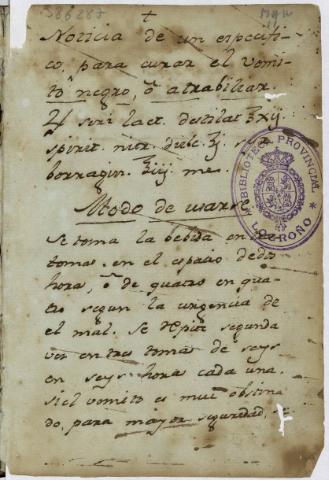 586285
Noticia de un especifi-
co, para curar el vomi-
to negro, ô atrabiliar.
seri lact. destilat. ℥xij
spirit. nitr. dulc. ʒj
borragin. ℥iij me.
Modo de usarse
Se toma la bebida en tres
tomas en el espacio de dos
hora, ô de quatro en qua-
tro segun la urgencia de
el mal. Se repite segunda
vez en tres tomas de seys
en seys hora cada una.
si el vomito es mui obstina
do, para mayor seguridad,
BIBLIOTECA PROVINCIAL
LOGROÑO